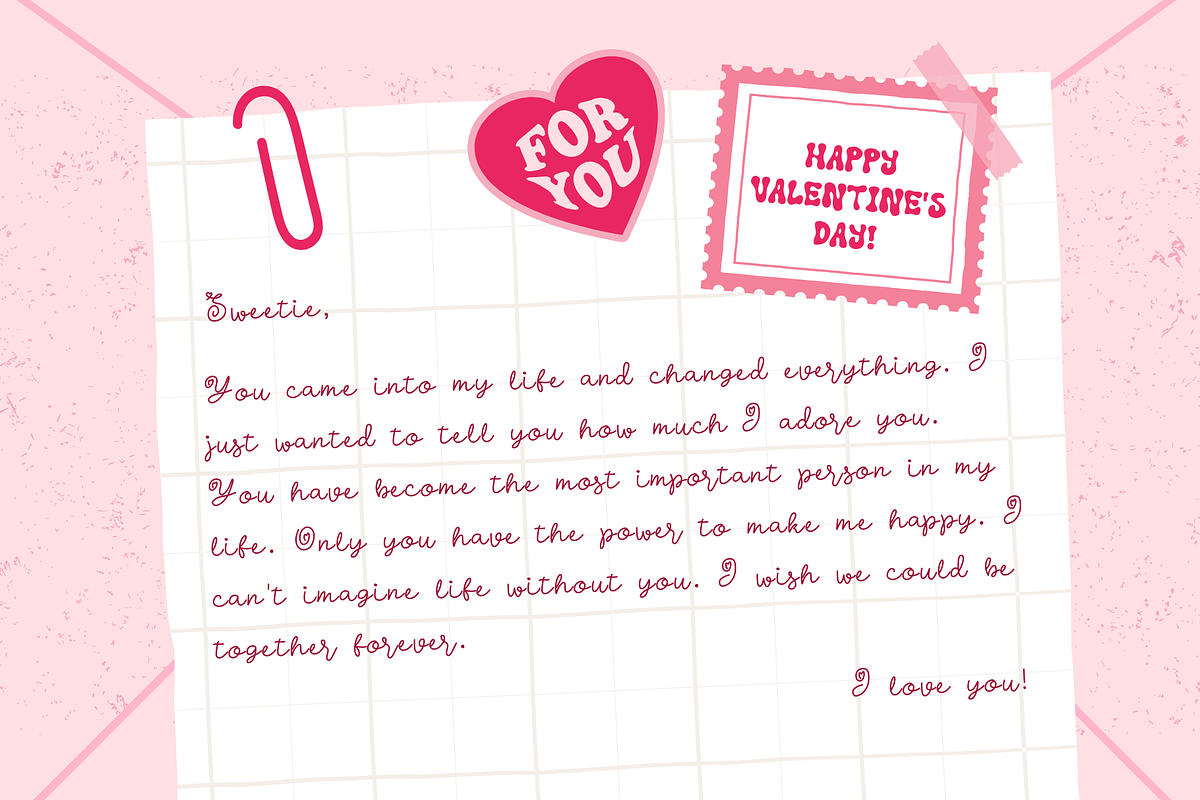 FOR
YOU
HAPPY
VALENTINE'S
DAY!
Sweetie,
You came into my life and changed everything. I
just wanted to tell you how much I adore you.
You have become the most important person in my
life. Only you have the power to make me happy. I
can't imagine life without you. I wish we could be
together forever.
I love you!